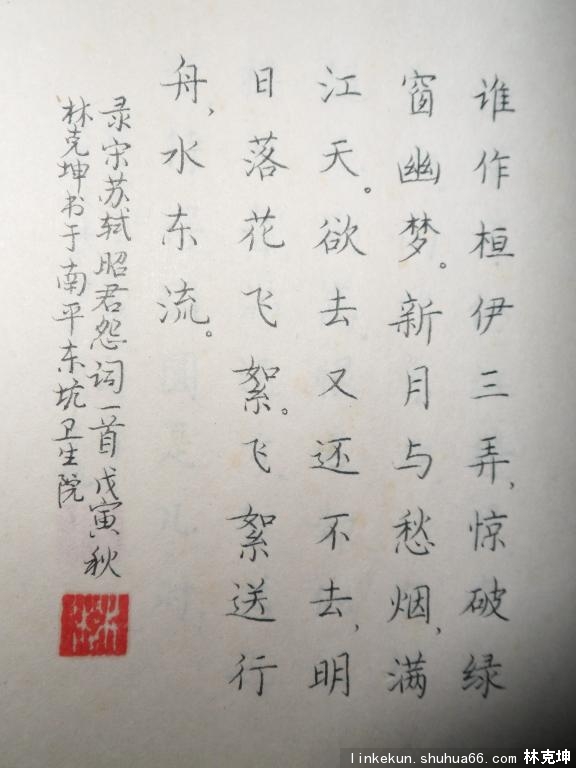 谁作桓伊三弄,惊破绿
窗幽梦。新月与愁烟,满
江天。欲去又还不去,明
日落花飞絮。飞絮送行
舟,水东流。
录宋苏轼昭君怨词一首戊寅秋
林克坤书于南平东坑卫生院
linkekun.shuhua66.com 林克坤